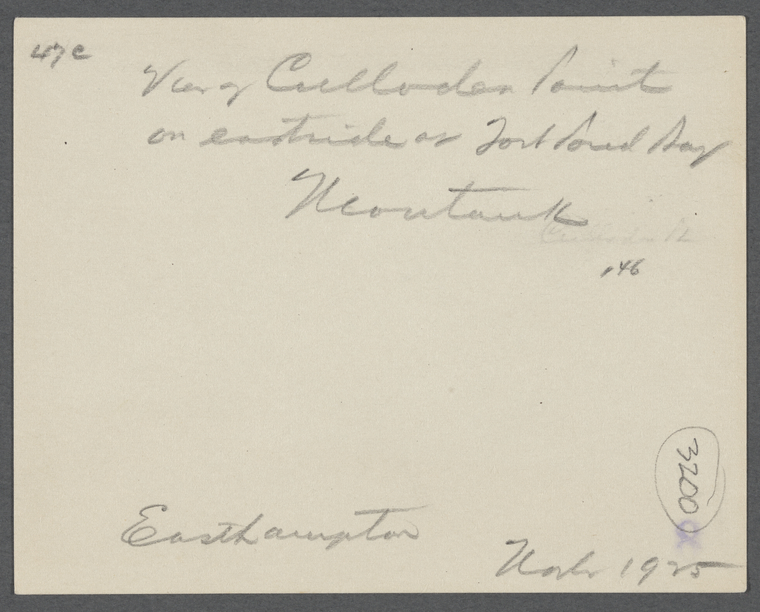 47c
View of Culloden Point
on east side of Fort Pond Bay
Montauk
Culloden Pt
146
3200
Easthampton
1925